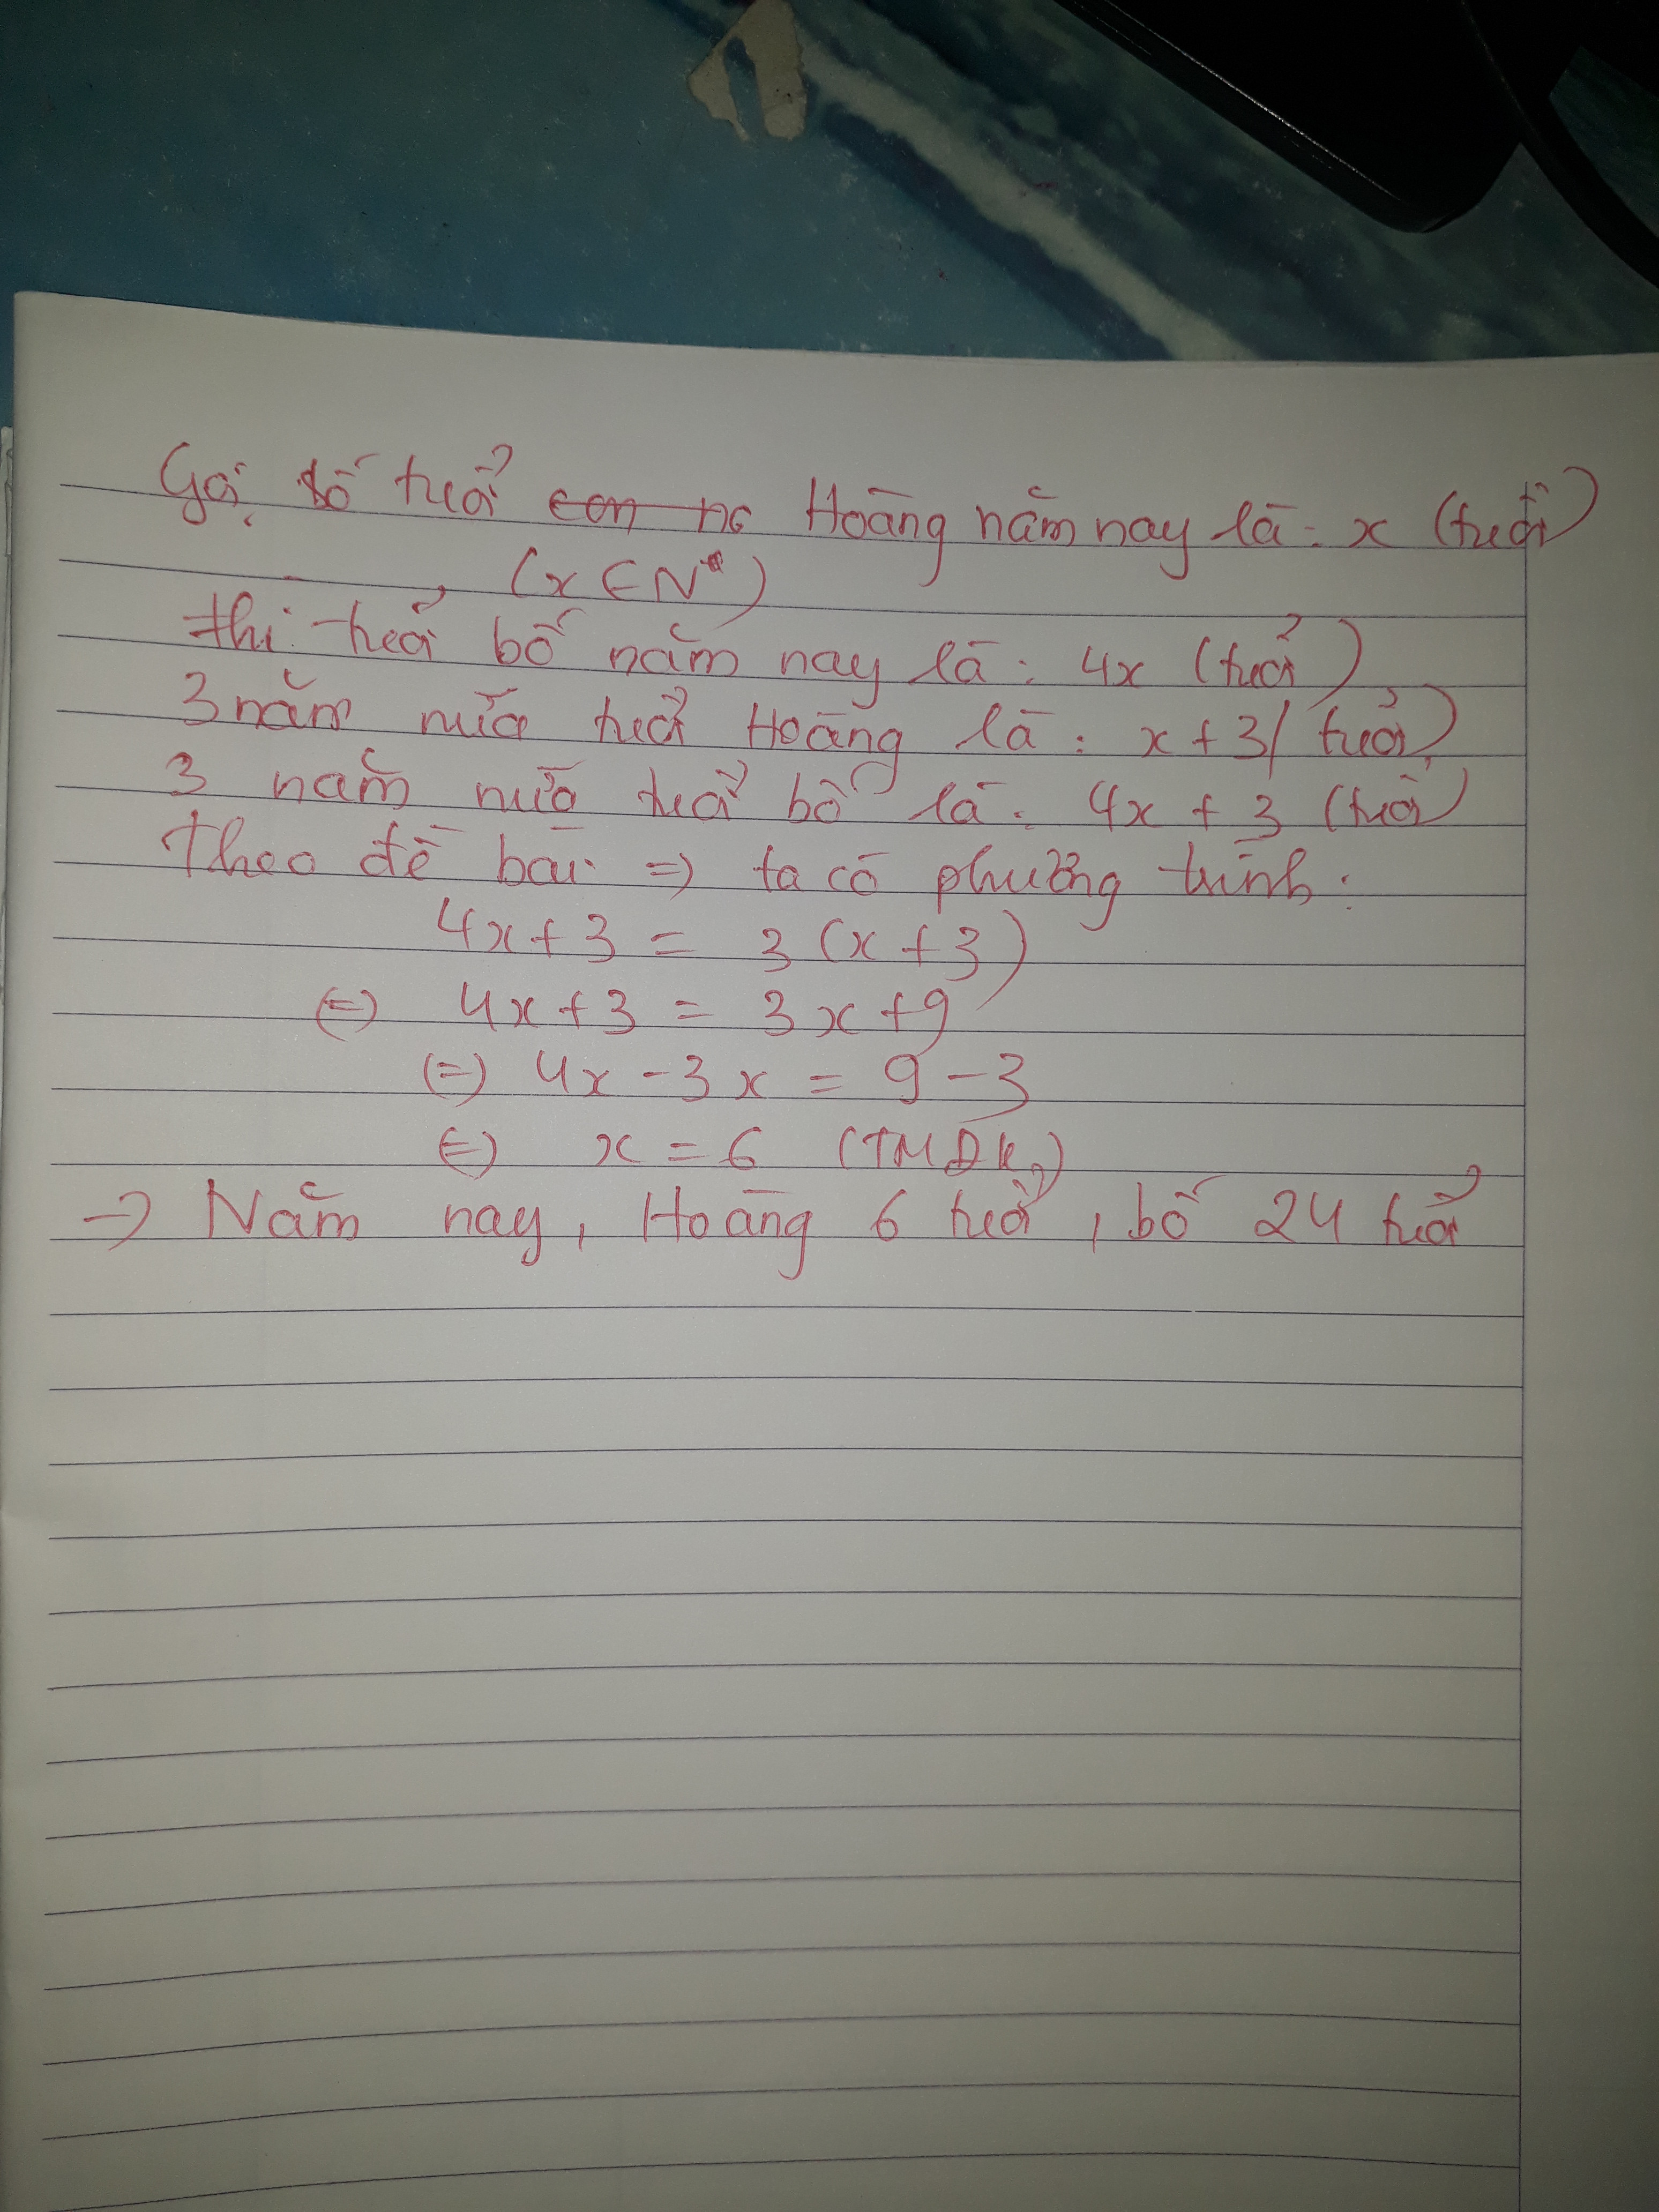 Gọi số tuổi con na Hoàng năm nay là: x (tuổi)
(x ∈ N*)
thì tuổi bố năm nay là: 4x (tuổi)
3 năm nữa tuổi Hoàng là: x + 3 (tuổi)
3 năm nữa tuổi bố là: 4x + 3 (tuổi)
Theo đề bài => ta có phương trình:
4x + 3 = 3 (x + 3)
(=) 4x + 3 = 3x + 9
(=) 4x - 3x = 9 - 3
(=) x = 6 (TMĐK)
-> Năm nay, Hoàng 6 tuổi, bố 24 tuổi